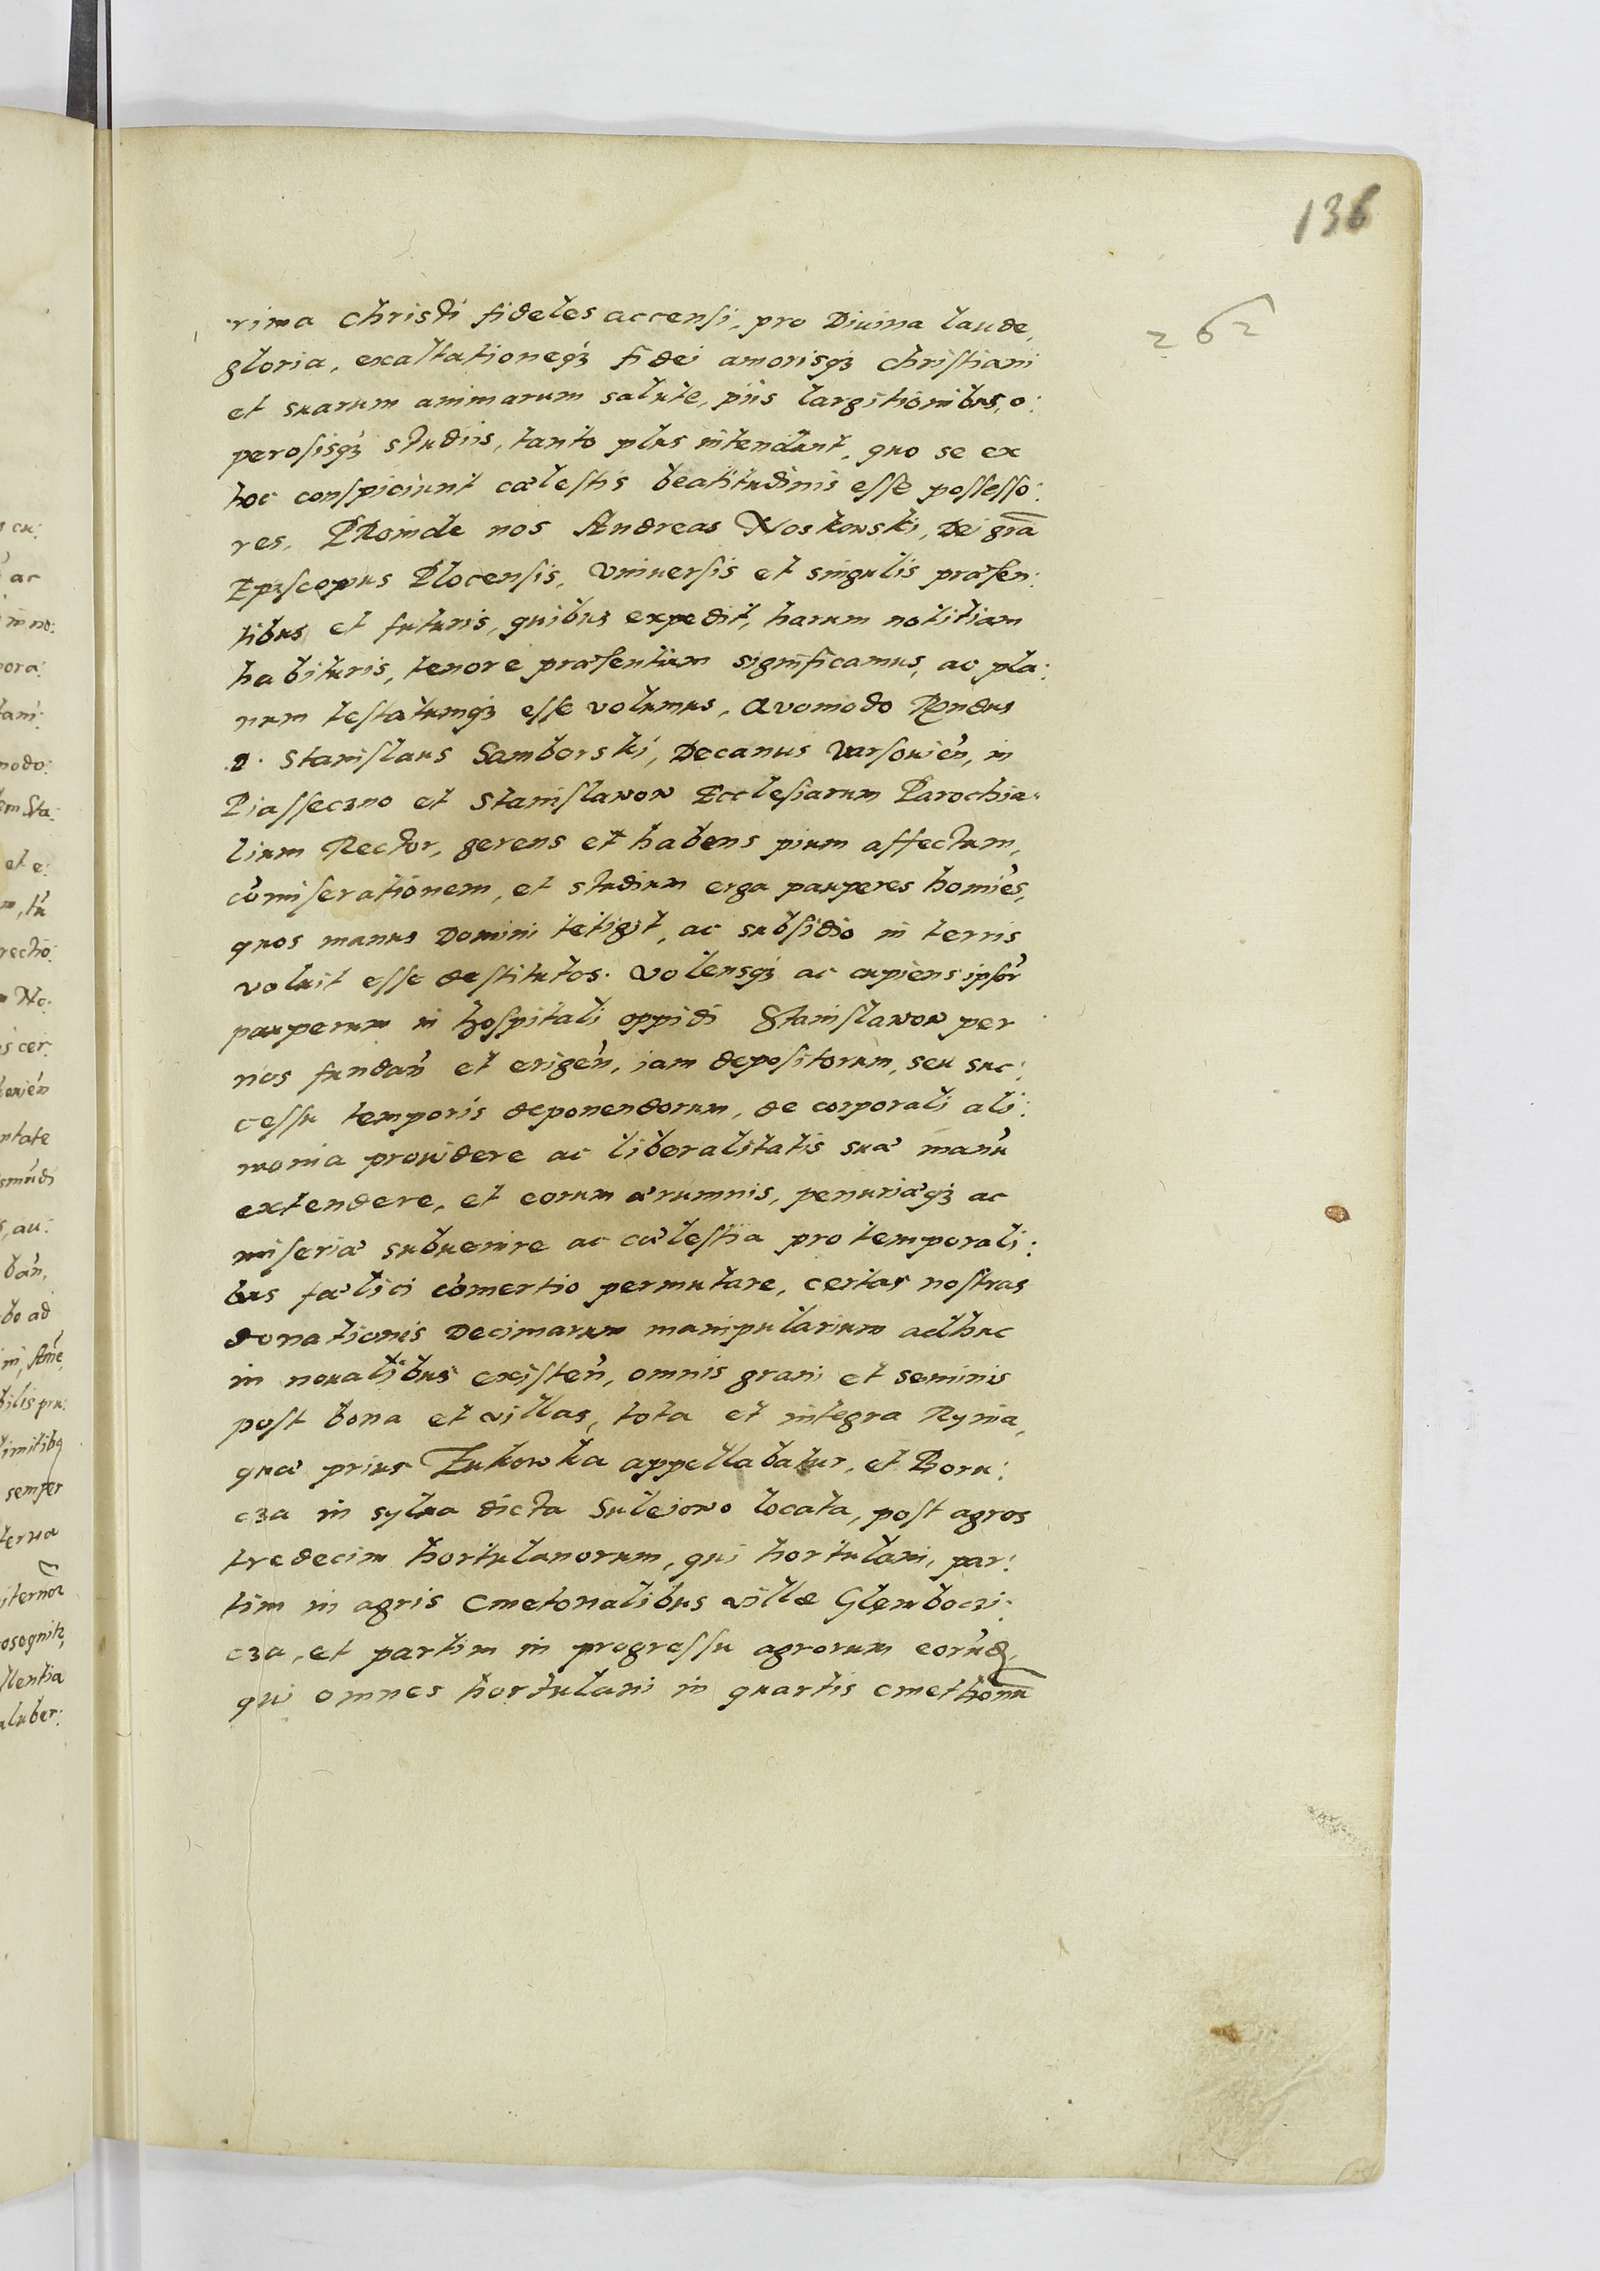 136
262
rima Christi fideles accensi, pro Diuina laude,
gloria, exaltationeqз fidei amorisqз christiani
et suarum animarum salute, piis largitionibus, o:
perosisqз studiis, tanto plus intendunt, quo se ex
hoc conspiciunt cælestis beatitudinis esse possesso:
res. PRoinde nos Andreas Noskowski, Dei gr̃a
Episcopus Plocensis, Vniuersis et singulis præsen:
tibus et futuris, quibus expedit, harum notitiam
habituris, tenore præsentium significamus, ac pla:
num testatumqз esse volumus, Quomodo Rñdus
D. Stanislaus Samborski, Decanus Varsouień, in
Piasseczno et Stanislawow Ecclesiarum Parochia:
lium Rector, gerens et habens pium affectum,
cōmiserationem, et studium erga pauperes homiēs,
quos manus Domini tetigit, ac subsidio in terris
voluit esse destitutos. Volensqз ac cupiens ipsor̃
pauperum in hospitali oppidi Stanislawow per
nos fundań et erigeń, iam depositorum, seu suc:
cessu temporis deponendorum, de corporali ali:
monia prouidere ac liberalitatis suæ manū
extendere, et eorum ærumnis, penuriæqз ac
miseriæ subuenire ac cælestia pro temporali:
bus fælici cōmertio permutare, certas nostras
donationis Decimarum manipularium adhuc
in noualibus existeń, omnis grani et seminis
post bona et villas, tota et integra Rynia,
quæ prius Zukowka appellabatur, et Boru:
cza in sylua dicta Sulejowo locata, post agros
tredecim hortulanorum, qui hortulani, par:
tim in agris Cmetonalibus villæ Glemboczi:
cza, et partim in progressu agrorum eorūd,
qui omnes hortulani in quartis cmethonū